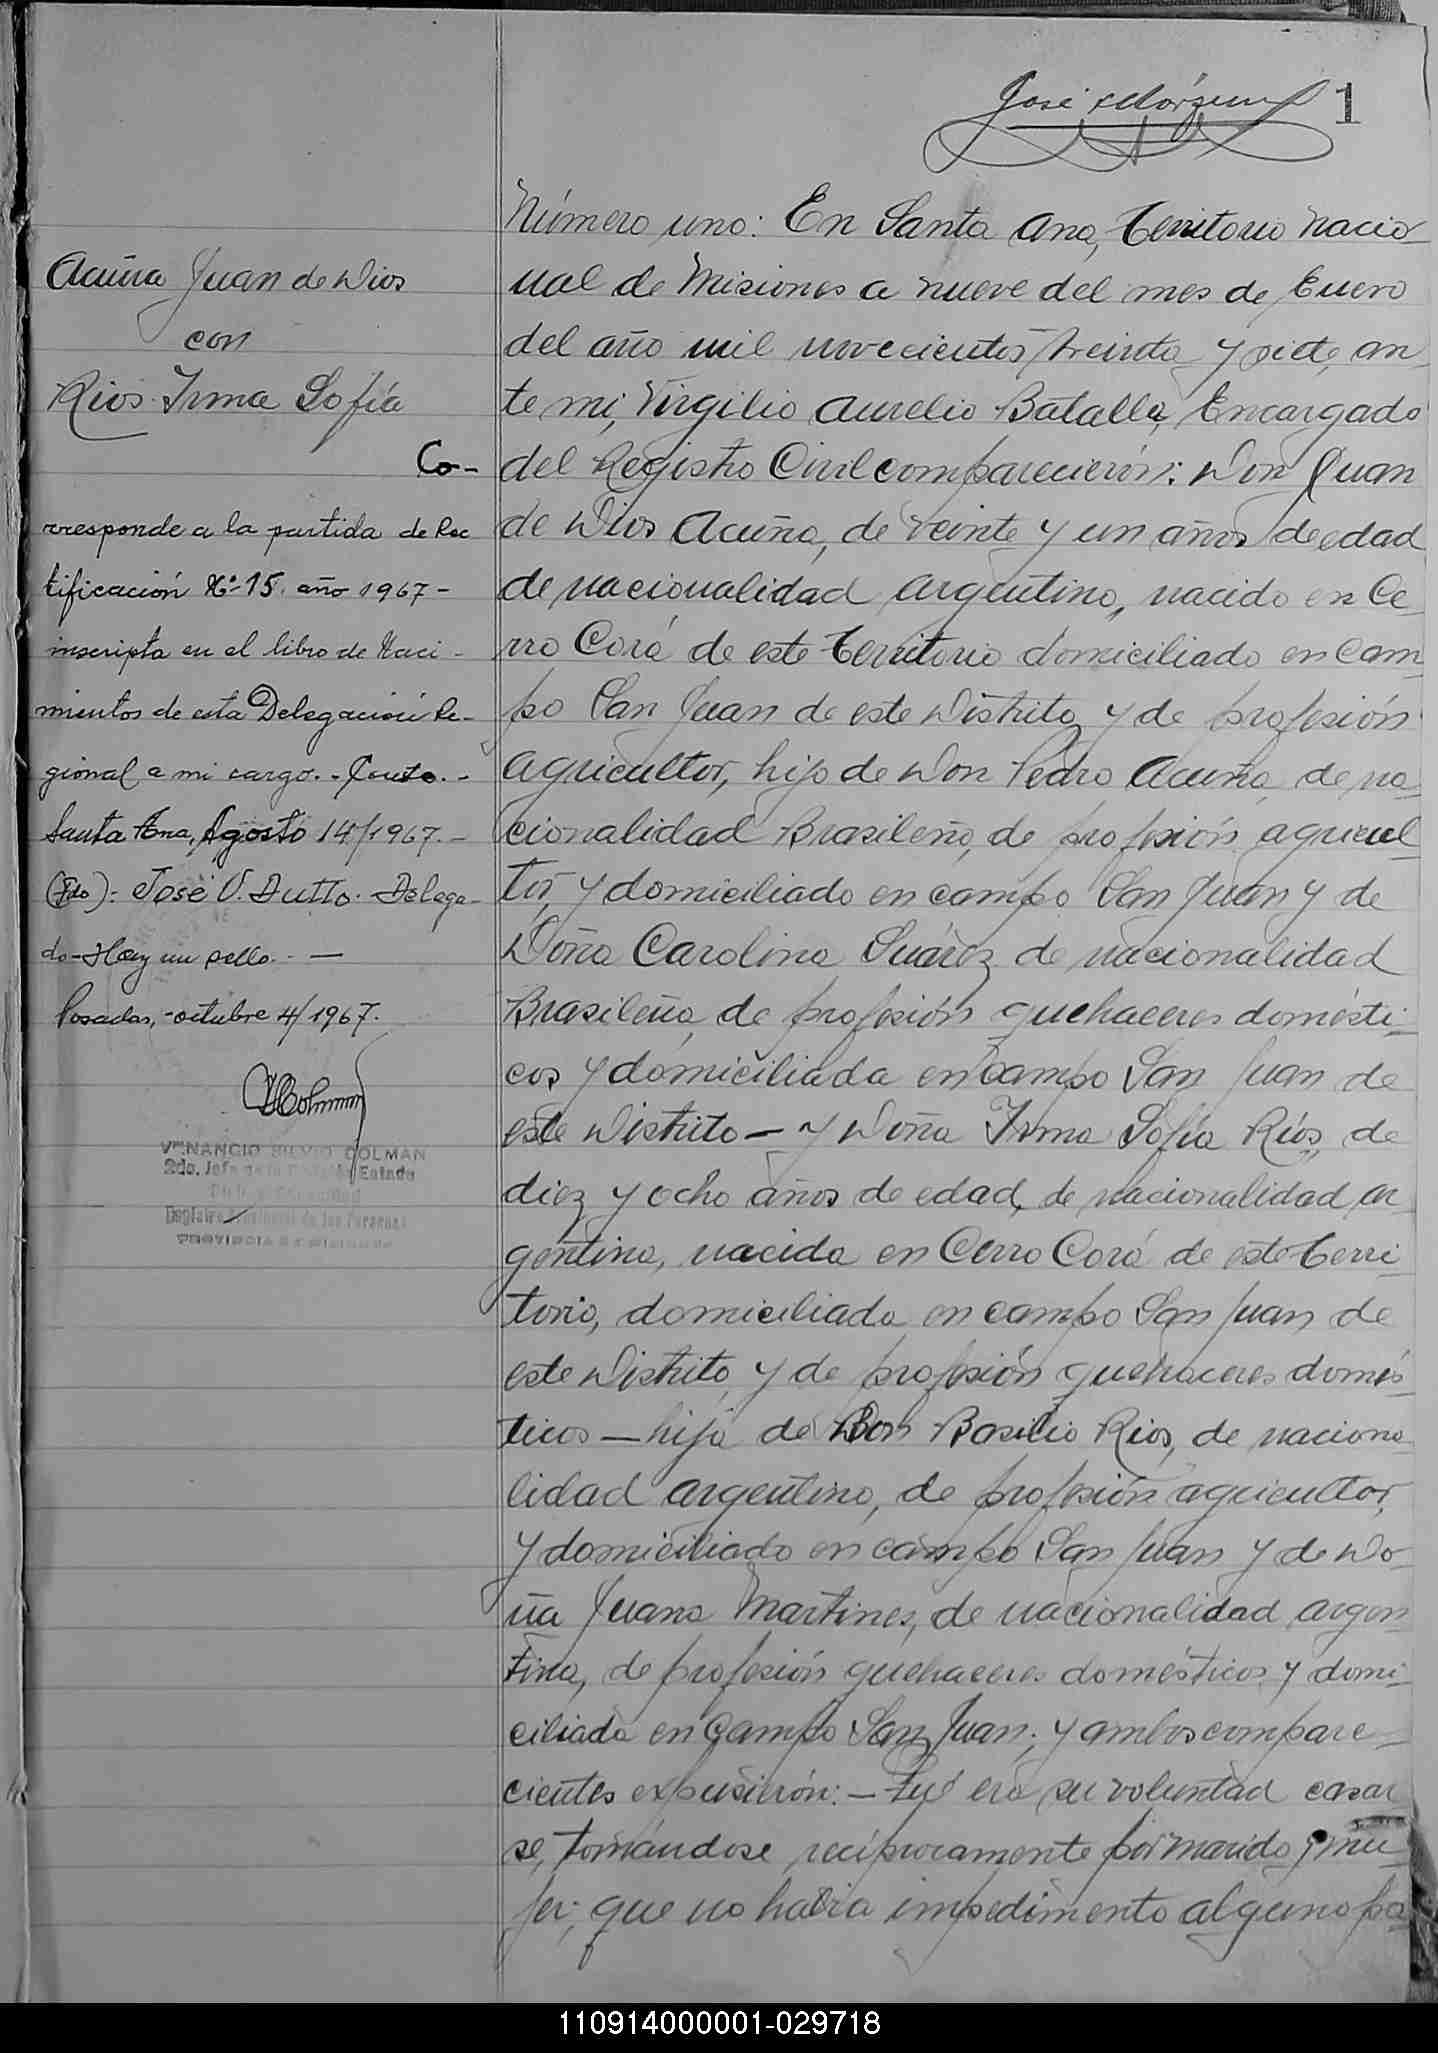 1
Acuña Juan de Dios
con
Rios Irma Sofía
Co-
rresponde a la partida de Rec
tificación Nº 15. año 1967-
inscripta en el libro de Naci-
mientos de esta Delegación Re-
gional a mi cargo.- Conste.-
Santa Ana, Agosto 14/1967.-
(Fdo): José V. Dutto. Delega-
do-Hay un sello.- —
Posadas,-octubre 4/1967.
VENANCIO SILVIO COLMAN
2do. Jefe de la División Estado
Registro Provincial de las Personas
PROVINCIA DE MISIONES
Número uno: En Santa Ana, Territorio Nacio-
nal de Misiones a nueve del mes de Enero
del año mil novecientos treinta y siete, an-
te mi, Virgilio Aurelio Batalla, Encargado
del Registro Civil comparecierón: Don Juan
de Dios Acuña, de veinte y un años de edad
de nacionalidad argentino, nacido en Ce-
rro Corá de este Territorio domiciliado en Cam
po San Juan de este Distrito y de profesión
agricultor, hijo de Don Pedro Acuña, de na-
cionalidad Brasileño, de profesión agricul-
tor, y domiciliado en campo San Juan y de
Doña Carolina Suárez de nacionalidad
Brasileña, de profesión quehaceres domésti-
cos y domiciliada en Campo San Juan de
este Distrito — y Doña Irma Sofía Ríos, de
diez y ocho años de edad, de nacionalidad ar-
gentina, nacida en Cerro Corá de este Terri-
torio, domiciliada en campo San Juan de
este Distrito y de profesión quehaceres domés-
ticos — hija de Don Basilio Rios, de naciona-
lidad argentino, de profesión agricultor,
y domiciliado en campo San Juan y de Do-
ña Juana Martines, de nacionalidad argen-
tina, de profesión quehaceres domésticos y domi-
ciliada en Campo San Juan; y ambos compare-
cientes expusierón: — era su voluntad casar
se, tomándose recíprocamente por marido y mu-
jer; que no habia impedimento alguno pa-
110914000001-029718